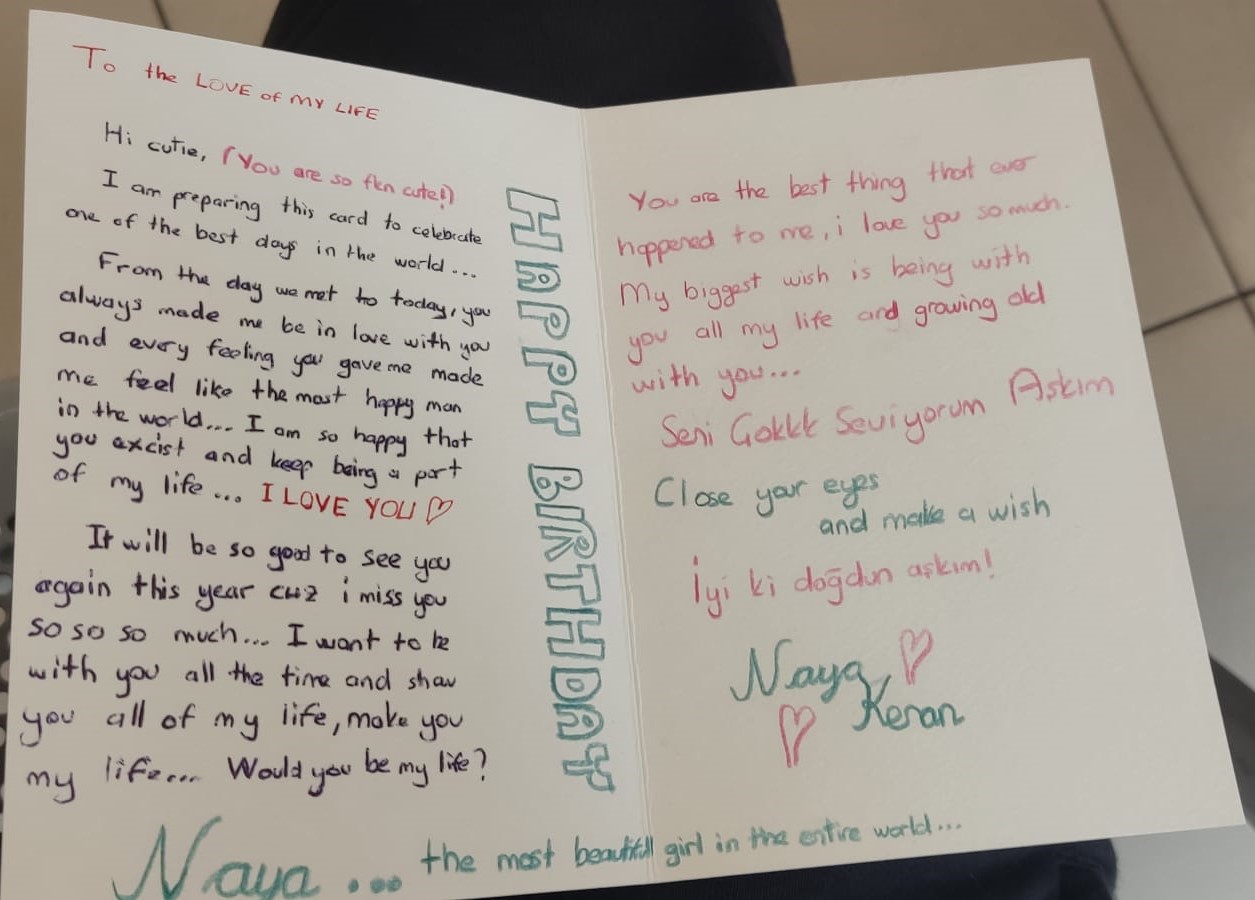 To the LOVE of MY LIFE
Hi cutie, (You are so fkn cute!)
I am preparing this card to celebrate
one of the best days in the world...
From the day we met to today, you
always made me be in love with you
and every feeling you gave me made
me feel like the most happy man
in the world... I am so happy that
you excist and keep being a part
of my life... I LOVE YOU ♡
It will be so good to see you
again this year cuz i miss you
so so so much... I want to be
with you all the time and show
you all of my life, make you
my life... Would you be my life?
Naya... the most beautifull girl in the entire world...
HAPPY BIRTHDAY
You are the best thing that ever
happened to me, i love you so much.
My biggest wish is being with
you all my life and growing old
with you...
Seni Çokkk Seviyorum Aşkım
Close your eyes
and make a wish
İyi ki doğdun aşkım!
Naya ♡
♡ Kenan